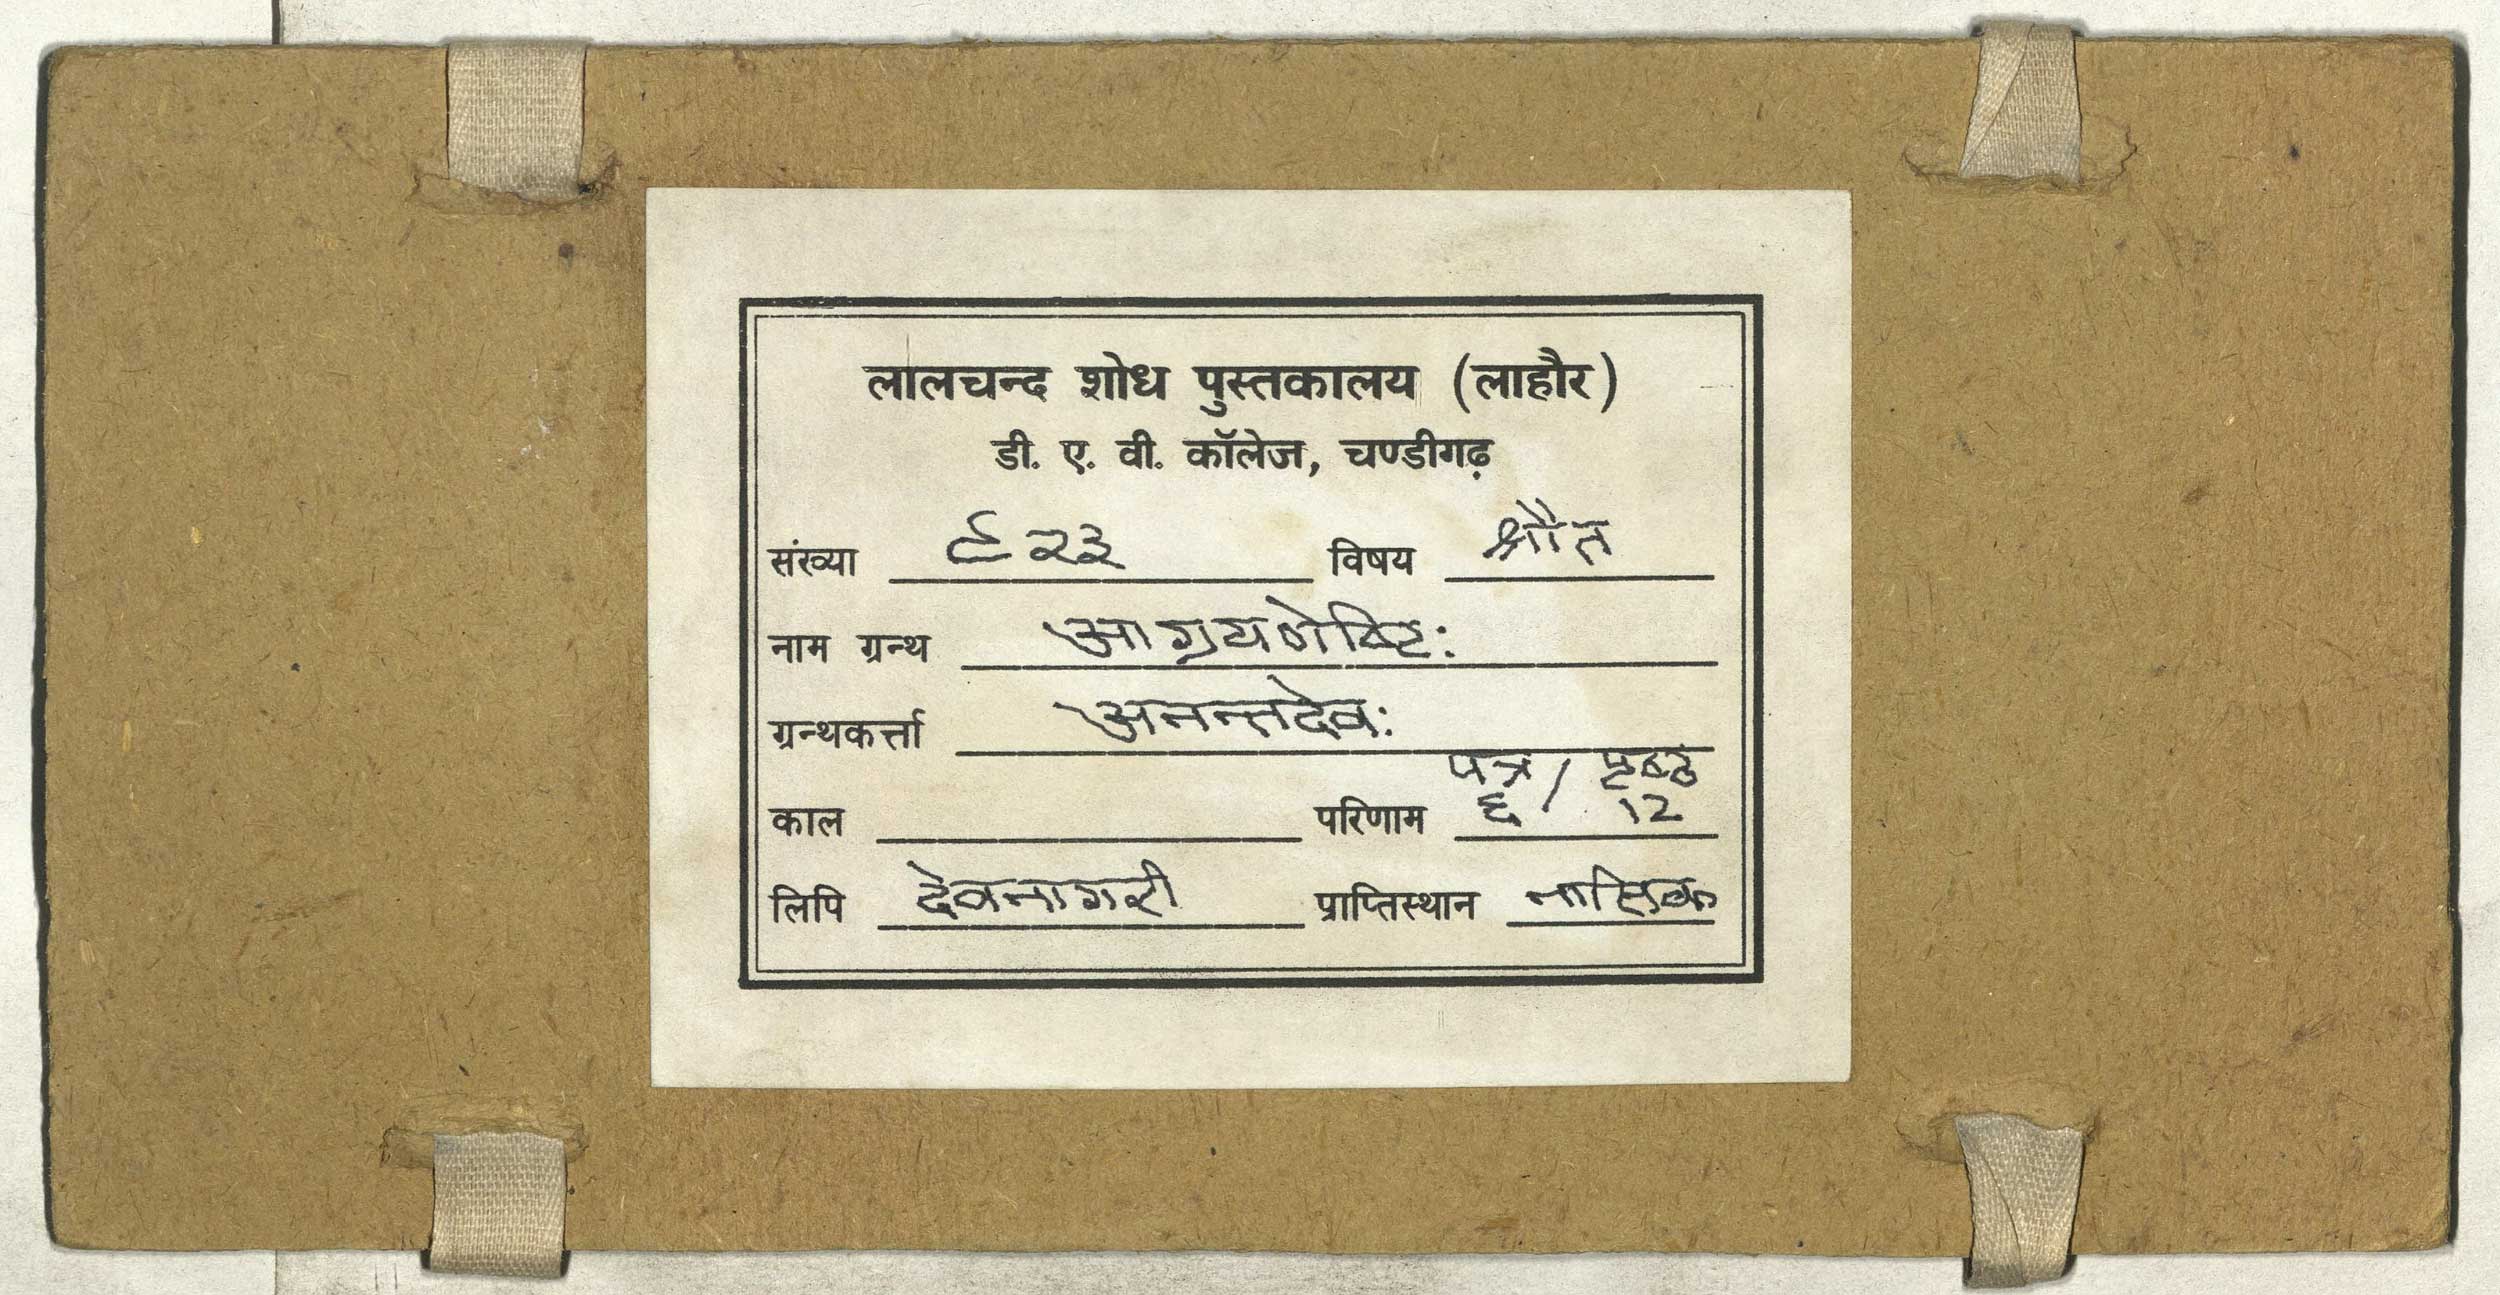 लालचन्द शोध पुस्तकालय (लाहौर)
डी. ए. वी. कॉलेज, चण्डीगढ़
संख्या ९२३ विषय श्रौत
नाम ग्रन्थ आग्रयणेष्टि:
ग्रन्थकर्त्ता अनन्तदेव:
पत्र / पृष्ठ
काल परिणाम ६ / 12
लिपि देवनागरी प्राप्तिस्थान नासिक